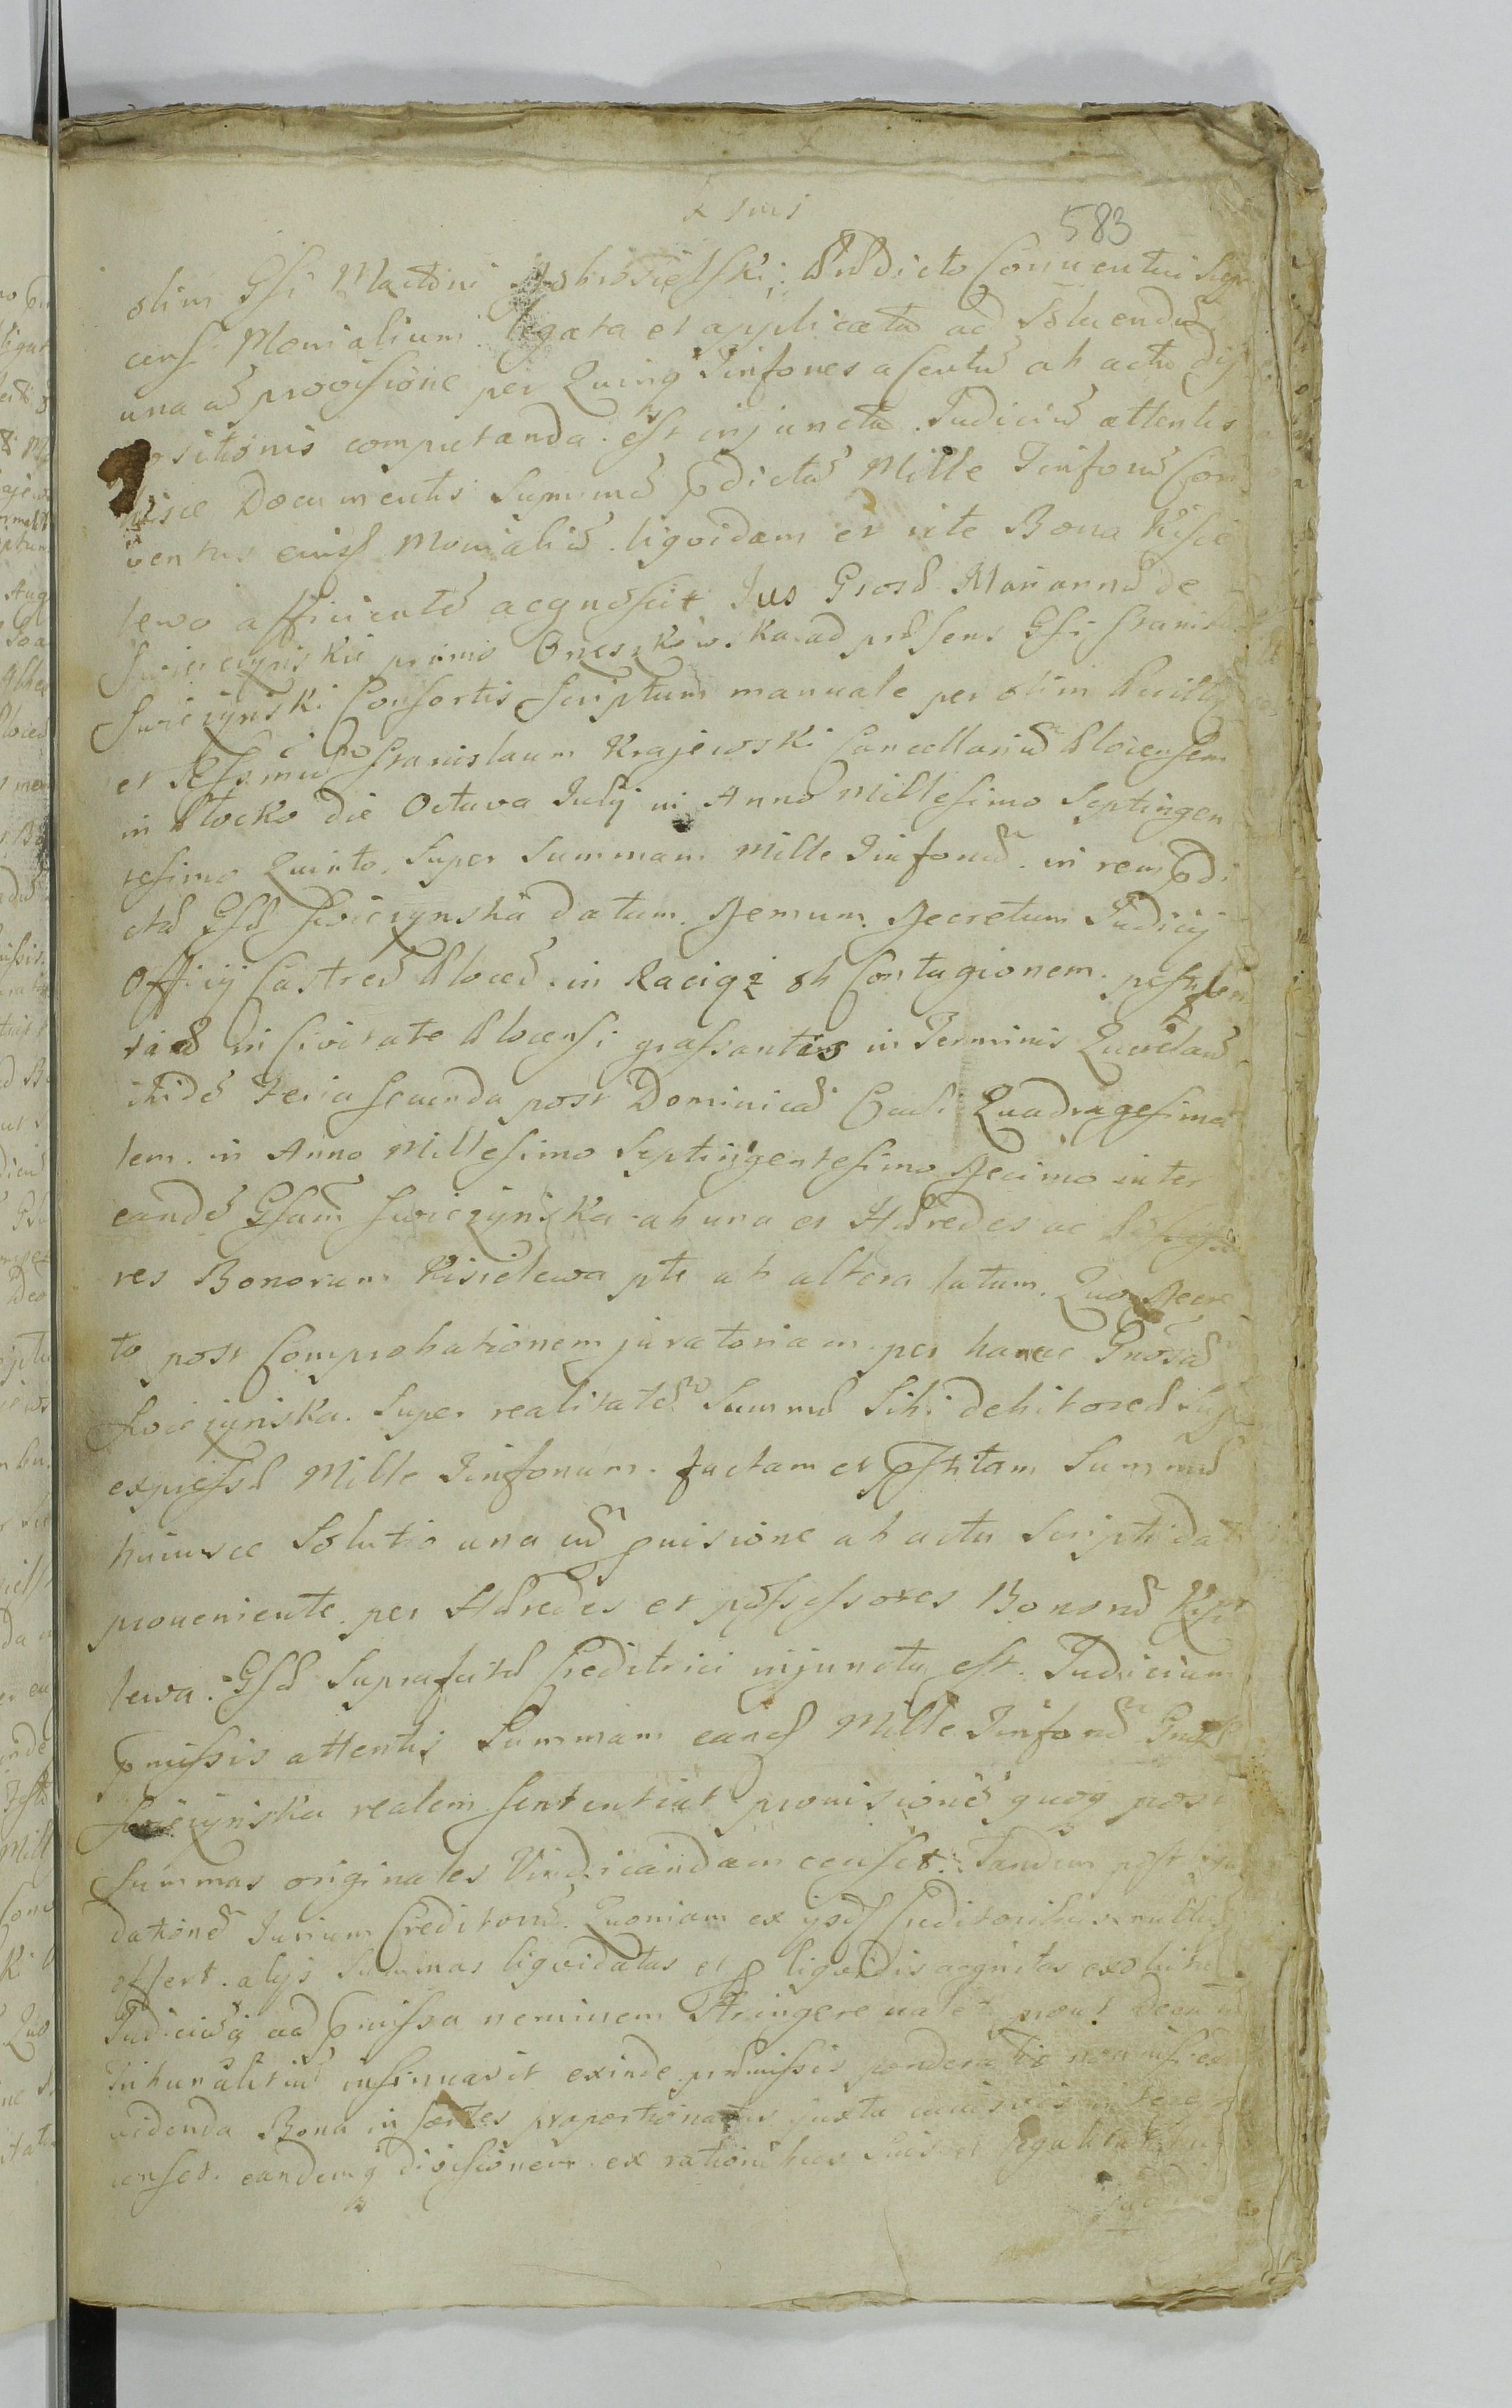 583
olim Gsi Martini Dobrosielski Prdicto Conventui
censi Monialium legata et applicata ad Solvendũ
una cũ provisione per Quinq Tinfones a Centu ab actu dis
sitionis computanda est injuncta Judiciũ attentis
hisce Documentis Summã pdictã Mille Tinfonũ Con
ventus eiusd Monialiũ liqvidam et rite Bona Kisie
lewo afficientẽ acgnoscit Jus Grosæ Mariannæ de
primo ad præsens Gsi Stanislai
Swiezynski Consortis Scriptum manuale per olim
et Stanislaum Krajewski Cancellariũ Plocensem
in Plocko die Octava Julij in Anno Millesimo Septingen
tesimo Quinto Super Summam Mille Tinfonũ in rem pdi
ctæ Gsæ Swiezynska datum Demum Decretum Judicij
Officij Castreñ Ploceñ in Raciąż ob Contagionem pestilen
tiæ in Civitate Plocensi grassantis in Terminis Querelarũ
ibidẽ Feria Secunda post Dominicã Oculi Quadragesima
lem in Anno Millesimo Septingentesimo Decimo inter
eandẽ Gsam Swiezynska ab una et Hæredes ac
res Bonorum Kisielewa pte ab altera latum Quo Decre
to post Comprobationem juratoriam per hance Gnosã
Swiezynska Super realitatẽ Summæ Sibi debitoreæ
expressæ Mille Tinfonum factam et pstitam Summæ
huiusce Solutio una cũ pvisione ab actu Scripti dati
proveniente per Hæredes et possessores Bonorũ Kisie
lewa Gsæ Suprafatæ Creditrici injuncta est Judicium
pmissis attentis Summam eand Mille Tinfonũ
Swiezynska realem sententiat provisionẽ quoq post
Summas originales Vindicandam censet Tandem post liqvi
dationẽ Jurium Creditorũ Quoniam ex ijsd Creditoribus nullus
offert alijs Summas liqvidatas et p liqvidis acgnitas
Judiciũq ad pmissa neminem Stringere valet prout
insinuavit exinde præmissis ponderatis
videnda Bona in sortes proportionatas juxta
censet eandemq divisionem ex rationibus suis et legalitatibus